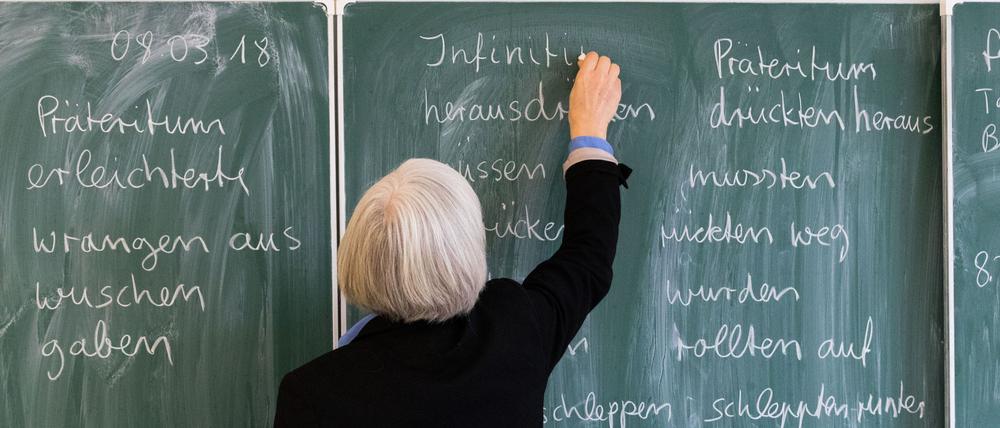 08.03.18
Präteritum
erleichterte
wrangen aus
wuschen
gaben
Infiniti
schleppen
Präteritum
drückten heraus
mussten
rückten weg
wurden
rollten auf
schleppten runter